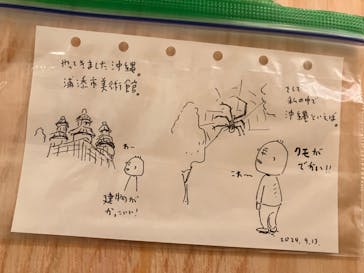 やってきました沖縄。
浦添市美術館。
わー
建物が
かっこいい!
そして
私の中で
沖縄といえば。
クモが
でかい!!
こわー
2024.9.13.